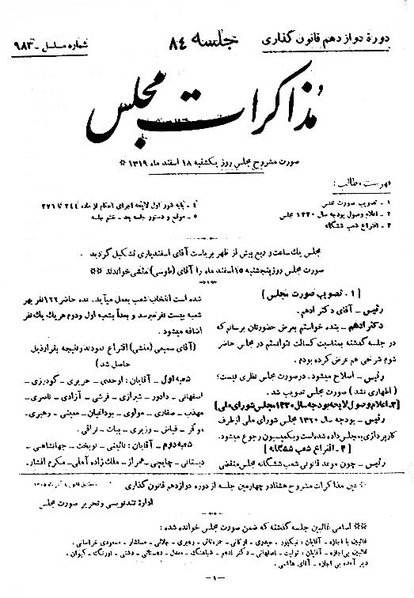 دورهٔ دوازدهم قانون گذاری
جلسه ۸٤
شماره مسلسل - ۹۸۳
مذاکرات مجلس
صورت مشروح مجلس روز یکشنبه ۱۸ اسفند ماه ۱۳۱۹
فهرست مطالب:
۱ - تصویب صورت مجلس
۲ - اعلام وصول بودجه سال ۱۳۲۰ مجلس
۳ - اقتراع شعب ششگانه
٤ - بقیه شور اول لایحه اجرای احکام از ماده ۲٤٤ تا ۲۷٦
۵ - موقع و دستور جلسه بعد - ختم جلسه
مجلس یک ساعت و ربع پیش از ظهر بریاست آقای اسفندیاری تشکیل گردید
صورت مجلس روز پنجشنبه ۱۵ اسفند ماه را آقای (طوسی) منشی خواندند
[ ۱ - تصویب صورت مجلس ]
رئیس - آقای دکتر ادهم.
دکتر ادهم - بنده خواستم بعرض حضورتان برسانم که
در جلسه گذشته بمناسبت کسالت نتوانستم در مجلس حاضر
شوم شرحی هم عرض کرده بودم.
رئیس - اصلاح میشود. در صورت مجلس نظری نیست؟
(اظهاری نشد) صورت مجلس تصویب شد.
[۲ - اعلام وصول لایحه بودجه سال ۱۳۲۰ مجلس شورای ملی]
رئیس - بودجه ۱۳۲۰ مجلس شورای ملی از طرف
کارپردازی بمجلس داده شده است بکمیسیون رجوع میشود.
[ ۳ - اقتراع شعب ششگانه ]
رئیس - چون موعد قانونی شعب ششگانه مجلس منقضی
شده است انتخاب شعب بعمل میآید. عده حاضر ۱۲۲ نفر بهر
شعبه بیست نفر میرسد و بعداً بشعبه اول و دوم هر یک یک نفر
اضافه میشود.
(آقای سمیعی (منشی) اقتراع نمودند و نتیجه بقرار ذیل
حاصل شد)
شعبه اول - آقایان: اوحدی - حریری - گودرزی -
اصفهانی - دادور - شیرازی - فرشی - آزادی - ناصری -
مهذب - صفاری - مولوی - بوداغیان - معینی - رهبری -
موقر - فیاض - وزیری - بیات - نراقی.
شعبه دوم - آقایان: نائینی - نوبخت - جهانشاهی -
دبستانی - چایچی - همراز - ملک زاده آملی - مکرم افشار.
عین مذاکرات مشروح هشتاد و چهارمین جلسه از دوره دوازدهم قانون گذاری
اداره تندنویسی و تحریر صورت مجلس
اسامی غائبین جلسه گذشته که ضمن صورت مجلس خوانده شده:
- ۱ -